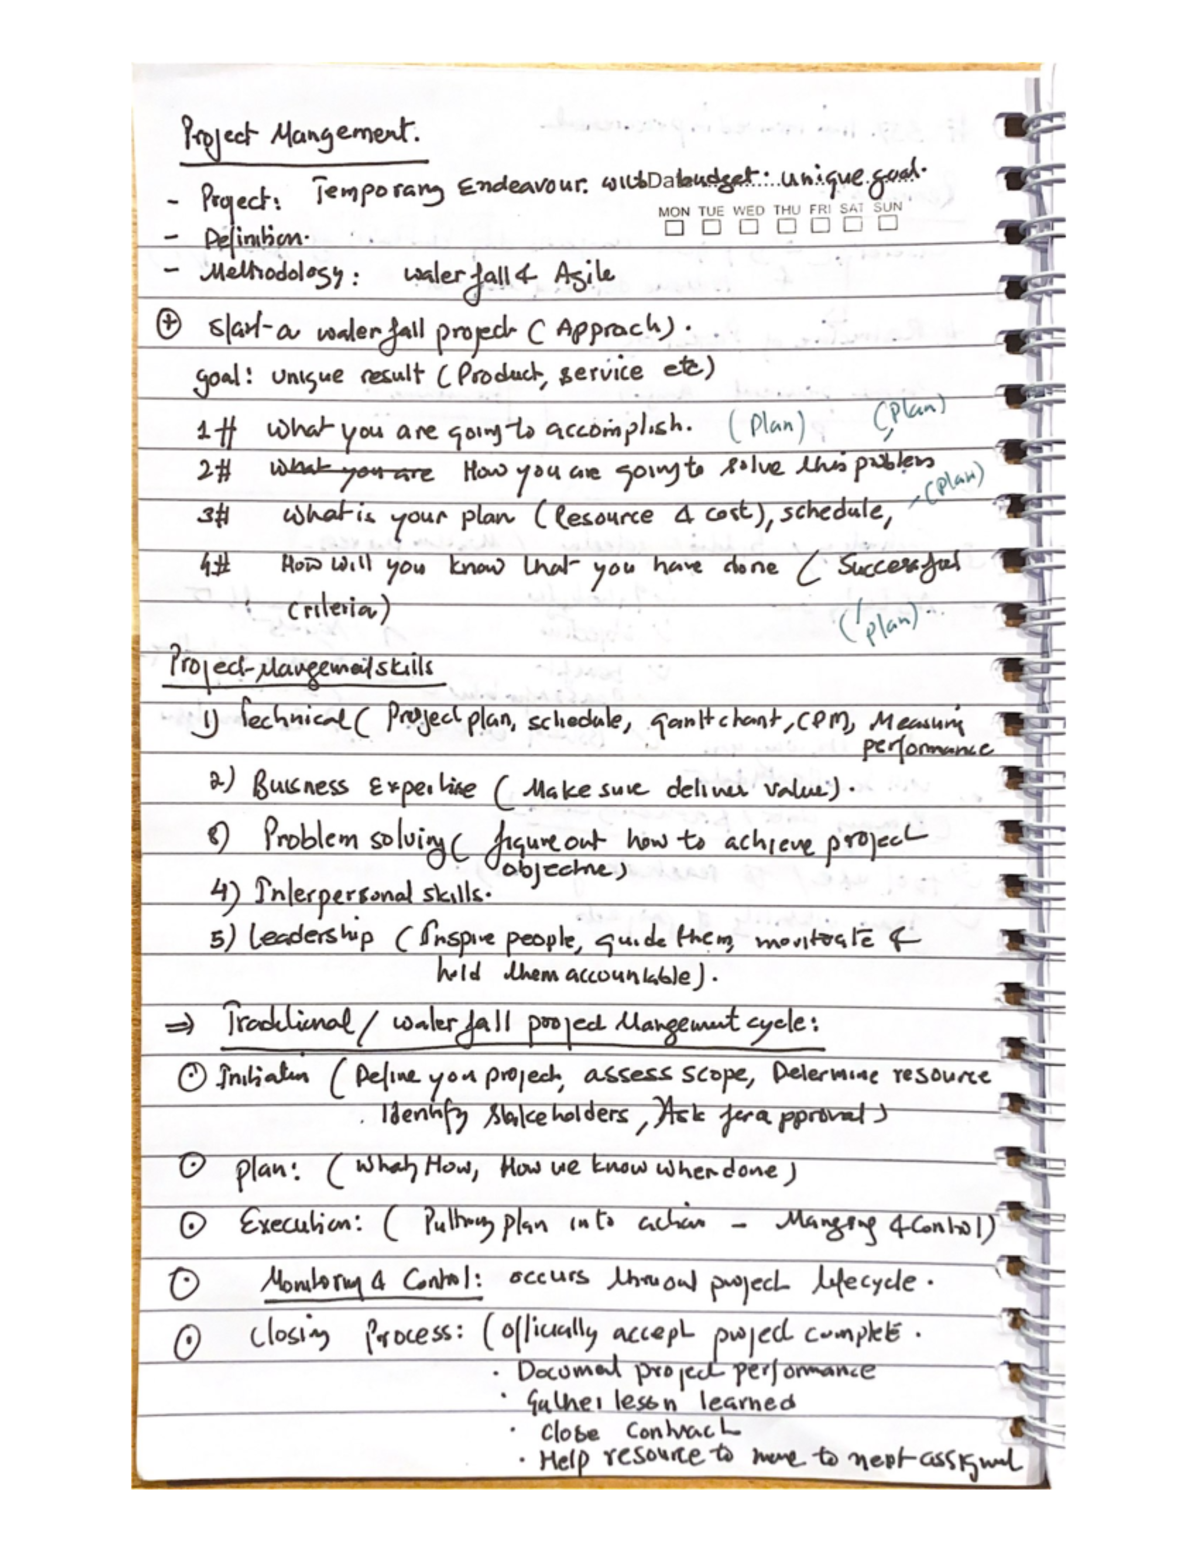 Project Mangement.
- Project: Temporary Endeavour. with budget. unique goal.
Da
MON TUE WED THU FRI SAT SUN
- Definition.
- Methodology: waterfall & Agile
⊕ Start a waterfall project (Approch).
goal: unique result (Product, service etc)
1# what you are going to accomplish. (Plan) (Plan)
2# what you are How you are going to solve this problem
3# what is your plan (Resource & cost), schedule, (plan)
4# How will you know that you have done (Successful
criteria) (plan).
Project Mangement skills
1) Technical ( Project plan, schedule, gantt chant, CPM, Measuring
performance
2) Buisness Expertise ( Make sure deliver value).
3) Problem solving ( figure out how to achieve project
objectives)
4) Interpersonal skills.
5) Leadership (Inspire people, guide them, movitvate &
hold them accountable).
⇒ Traditional / waterfall project Mangement cycle:
⊙ Initiation (Define your project, assess scope, Determine resource
. Identify Stakeholders, Ask for approval)
⊙ plan: (what, How, How we know when done)
⊙ Execution: ( Putting plan into action - Manging & Control)
⊙ Monitoring & Control: occurs throuout project lifecycle.
⊙ Closing Process: (officially accept project complete.
. Document project performance
. Gather lesson learned
. Close Contract
. Help resource to move to next